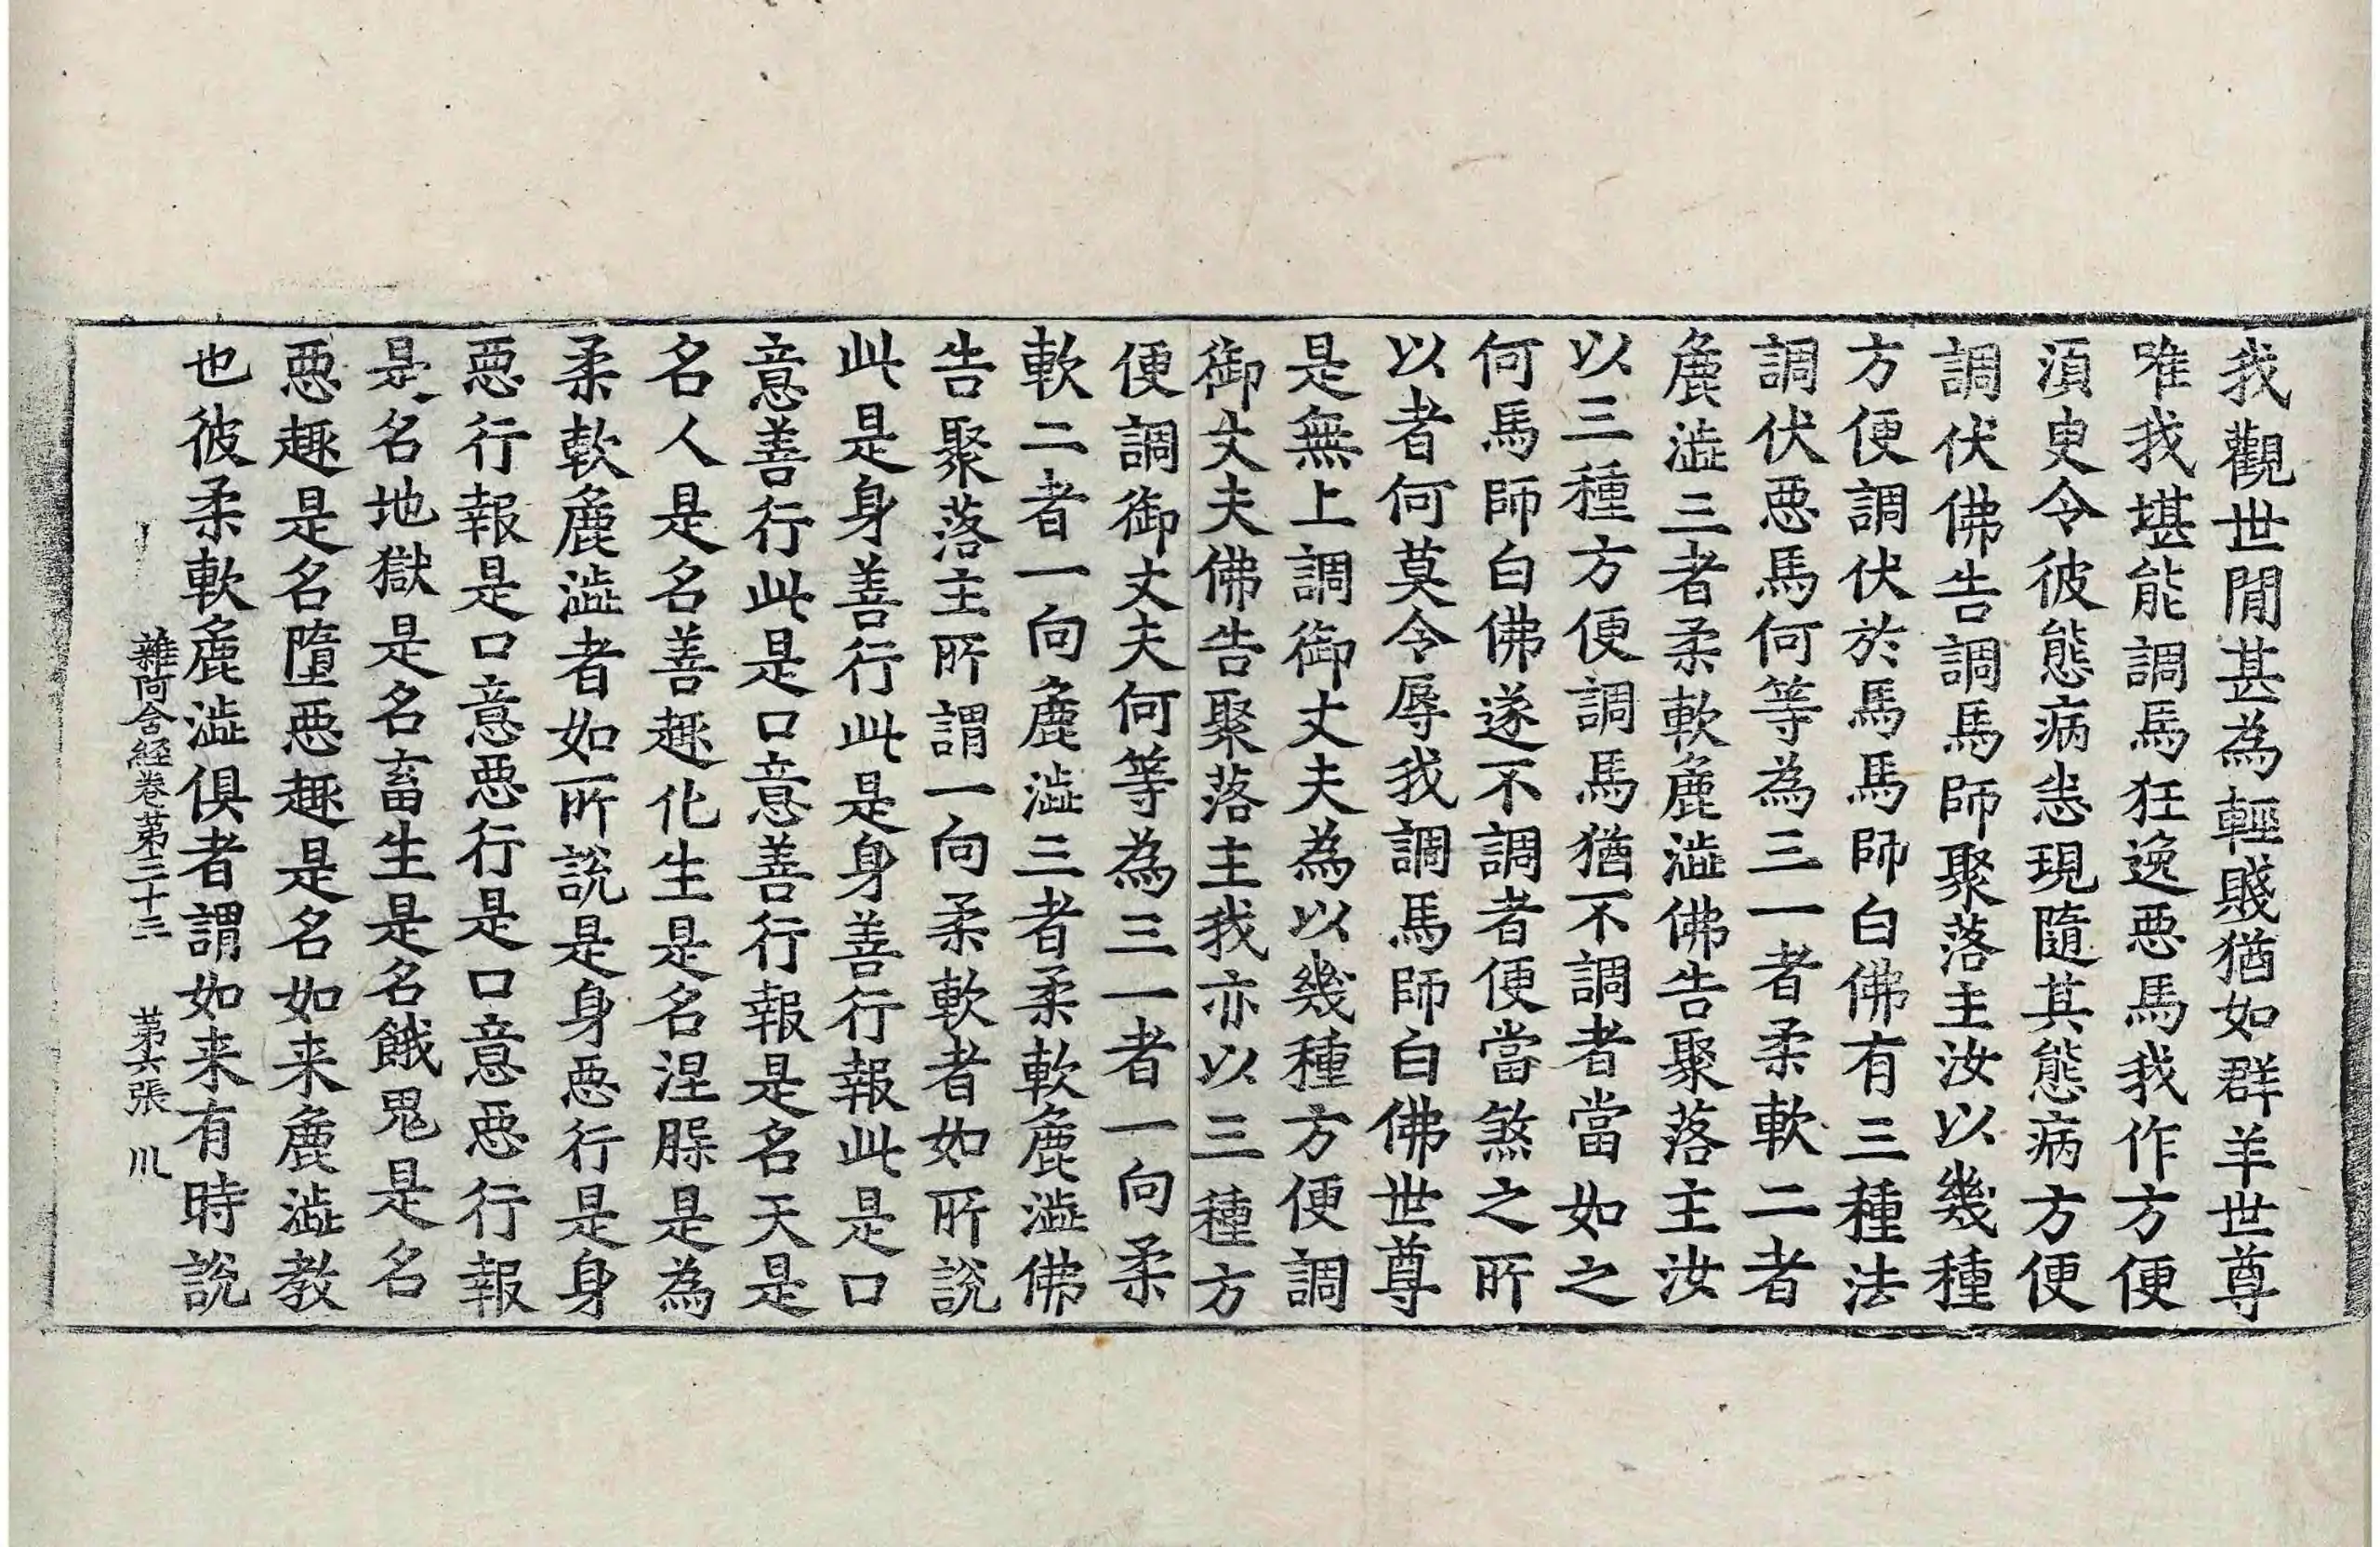 我觀世閒甚為輕賤猶如群羊世尊
唯我堪能調馬狂逸惡馬我作方便
湏臾令彼態病恙現隨其態病方便
調伏佛告調馬師聚落主汝以幾種
方便調伏於馬馬師白佛有三種法
調伏惡馬何等為三一者柔軟二者
麁澁三者柔軟麁澁佛告聚落主汝
以三種方便調馬猶不調者當如之
何馬師白佛遂不調者便當煞之所
以者何莫令辱我調馬師白佛世尊
是無上調御丈夫為以幾種方便調
御丈夫佛告聚落主我亦以三種方
便調御丈夫何等為三一者一向柔
軟二者一向麁澁三者柔軟麁澁佛
告聚落主所謂一向柔軟者如所說
此是身善行此是身善行報此是口
意善行此是口意善行報是名天是
名人是名善趣化生是名涅槃是為
柔軟麁澁者如所說是身惡行是身
惡行報是口意惡行是口意惡行報
是名地獄是名畜生是名餓鬼是名
惡趣是名墮惡趣是名如来麁澁教
也彼柔軟麁澁俱者謂如来有時說
雜阿含經卷苐三十三 苐六張 川